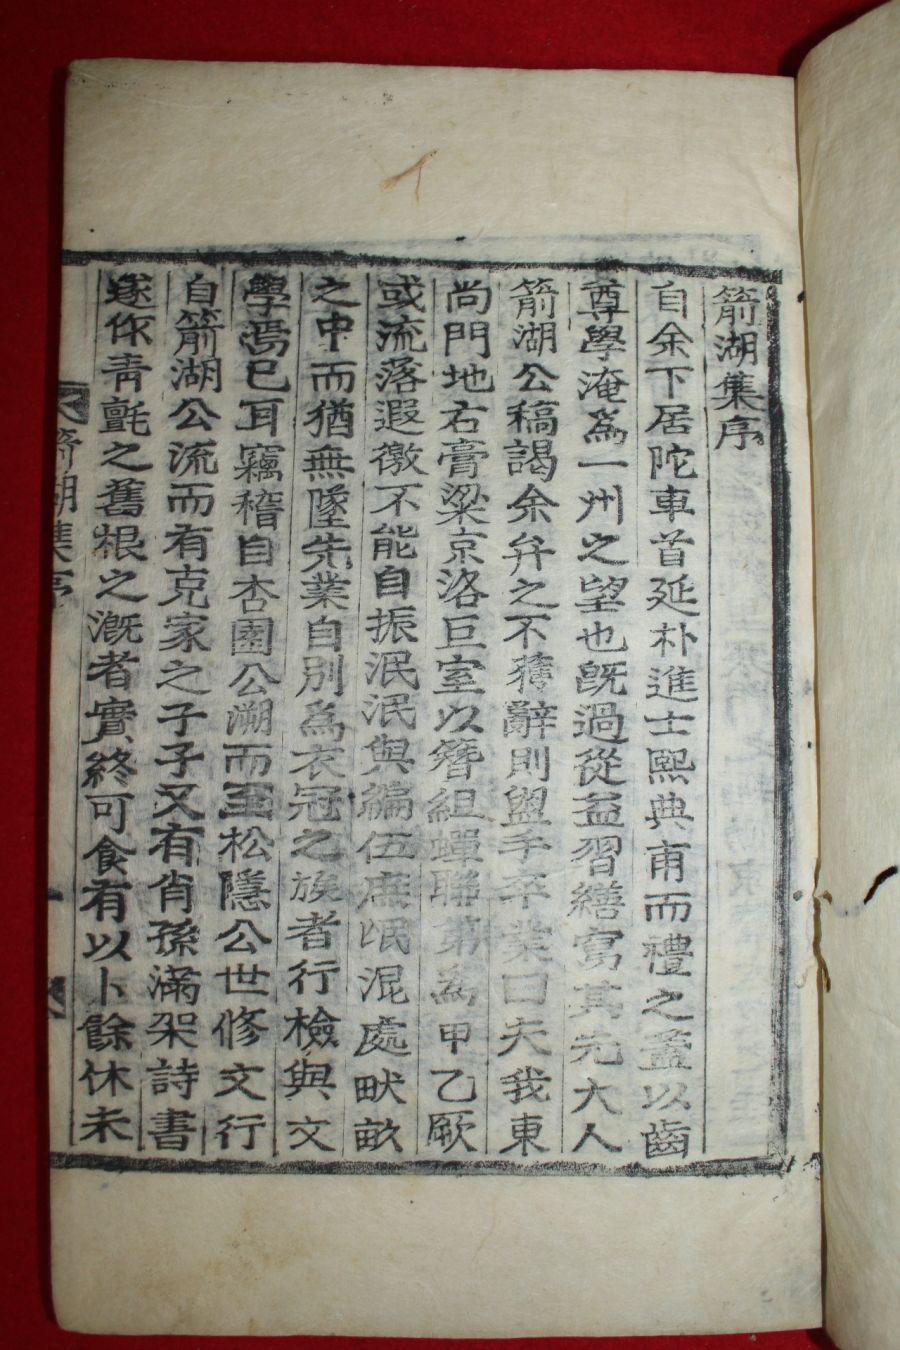 箭湖集序
自余下居陀車首延朴進士熙典甫而禮之蓋以齒
尊學淹為一州之望也旣過從益習繕寫其先大人
箭湖公稿謁余弁之不獲辭則盥手卒業曰夫我東
尚門地右膏粱京洛巨室以簪組蟬聯第為甲乙厥
或流落遐徼不能自振泯泯與編伍庶氓混處畎畝
之中而猶無墜先業自別為衣冠之族者行檢與文
學焉已耳竊稽自杏園公溯而至松隱公世修文行
自箭湖公流而有克家之子子又有肖孫滿架詩書
遂作靑氈之舊根之漑者實終可食有以卜餘休未
箭湖集序